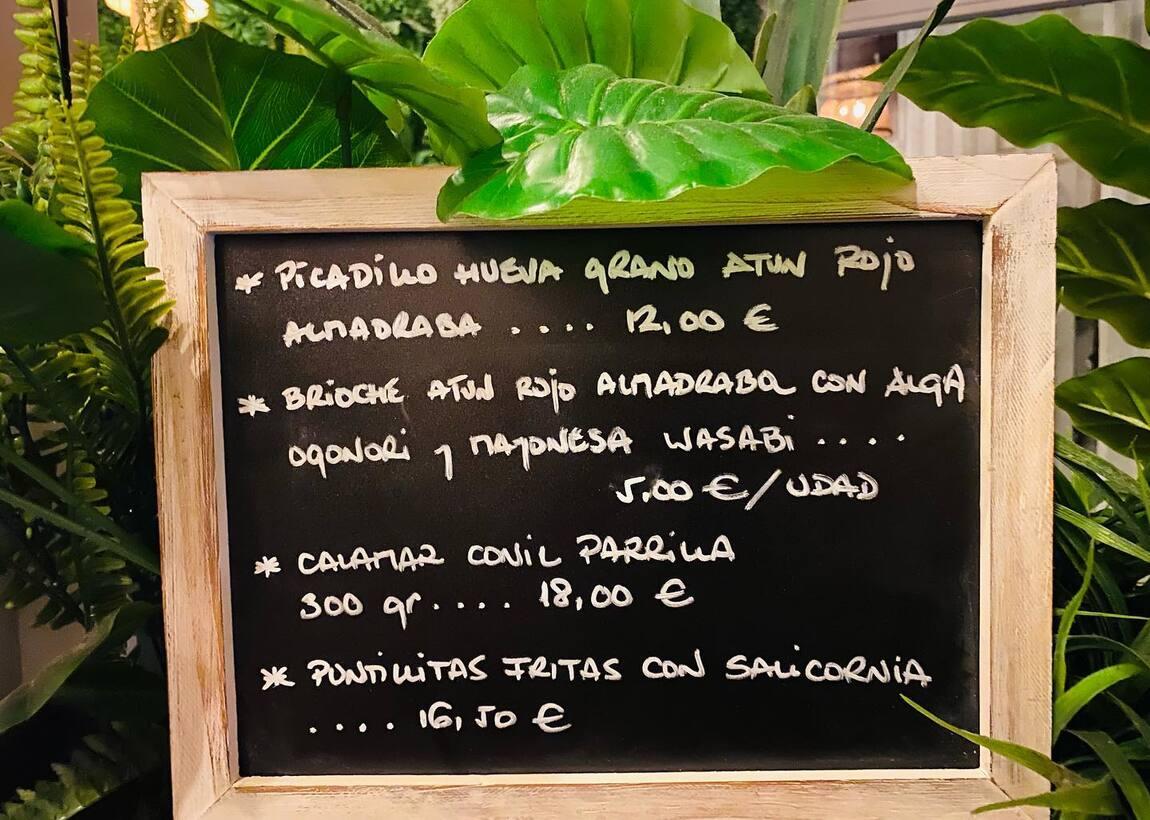 * PICADILLO HUEVA GRANO ATUN ROJO
ALMADRABA .... 12,00 €
* BRIOCHE ATUN ROJO ALMADRABA CON ALGA
OGONORI Y MAYONESA WASABI ....
5,00 €/UDAD
* CALAMAR CONIL PARRILLA
300 gr .... 18,00 €
* PUNTILLITAS FRITAS CON SALICORNIA
.... 16,50 €